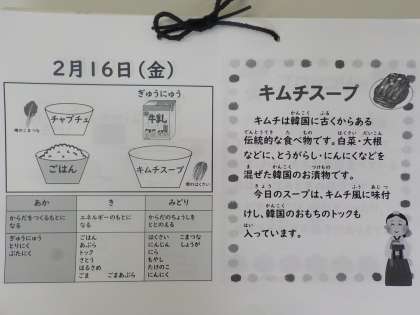 2月16日(金)
ぎゅうにゅう
チャプチュ
牛乳
ごはん
キムチスープ
あか
き
みどり
からだをつくるもとになる
エネルギーのもとになる
からだのちょうしをととのえる
ぎゅうにゅう
とりにく
ぶたにく
ごはん
あぶら
トック
さとう
はるさめ
ごま ごまあぶら
はくさい こまつな
にんじん しょうが
にら
もやし
たけのこ
にんにく
キムチスープ
キムチは韓国に古くからある
伝統的な食べ物です。白菜・大根
などに、とうがらし・にんにくなどを
混ぜた韓国のお漬物です。
今日のスープは、キムチ風に味付
けし、韓国のおもちのトックも
入っています。